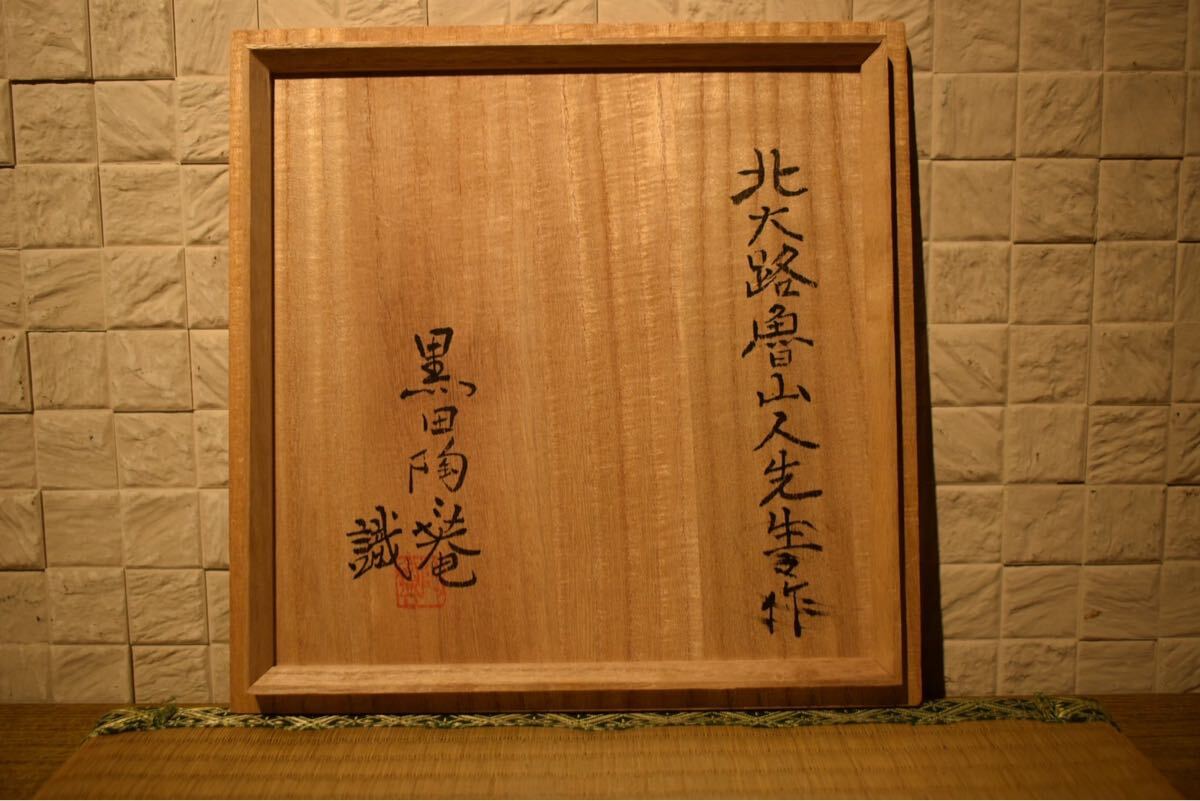 北大路魯山人先生㐂作
黒田陶菴
識